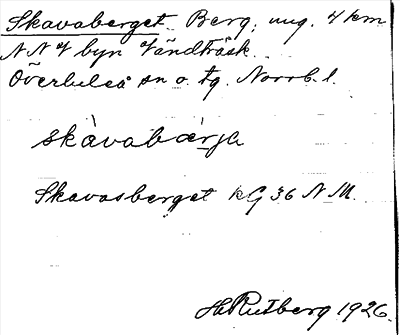 Skavaberget. Berg, ung. 4 km
N N V byn Vändträsk
Överluleå sn o. tg. Norrb. l.
skàvabærja
Skavasberget kG 36 N M.
H. Rutberg 1926.